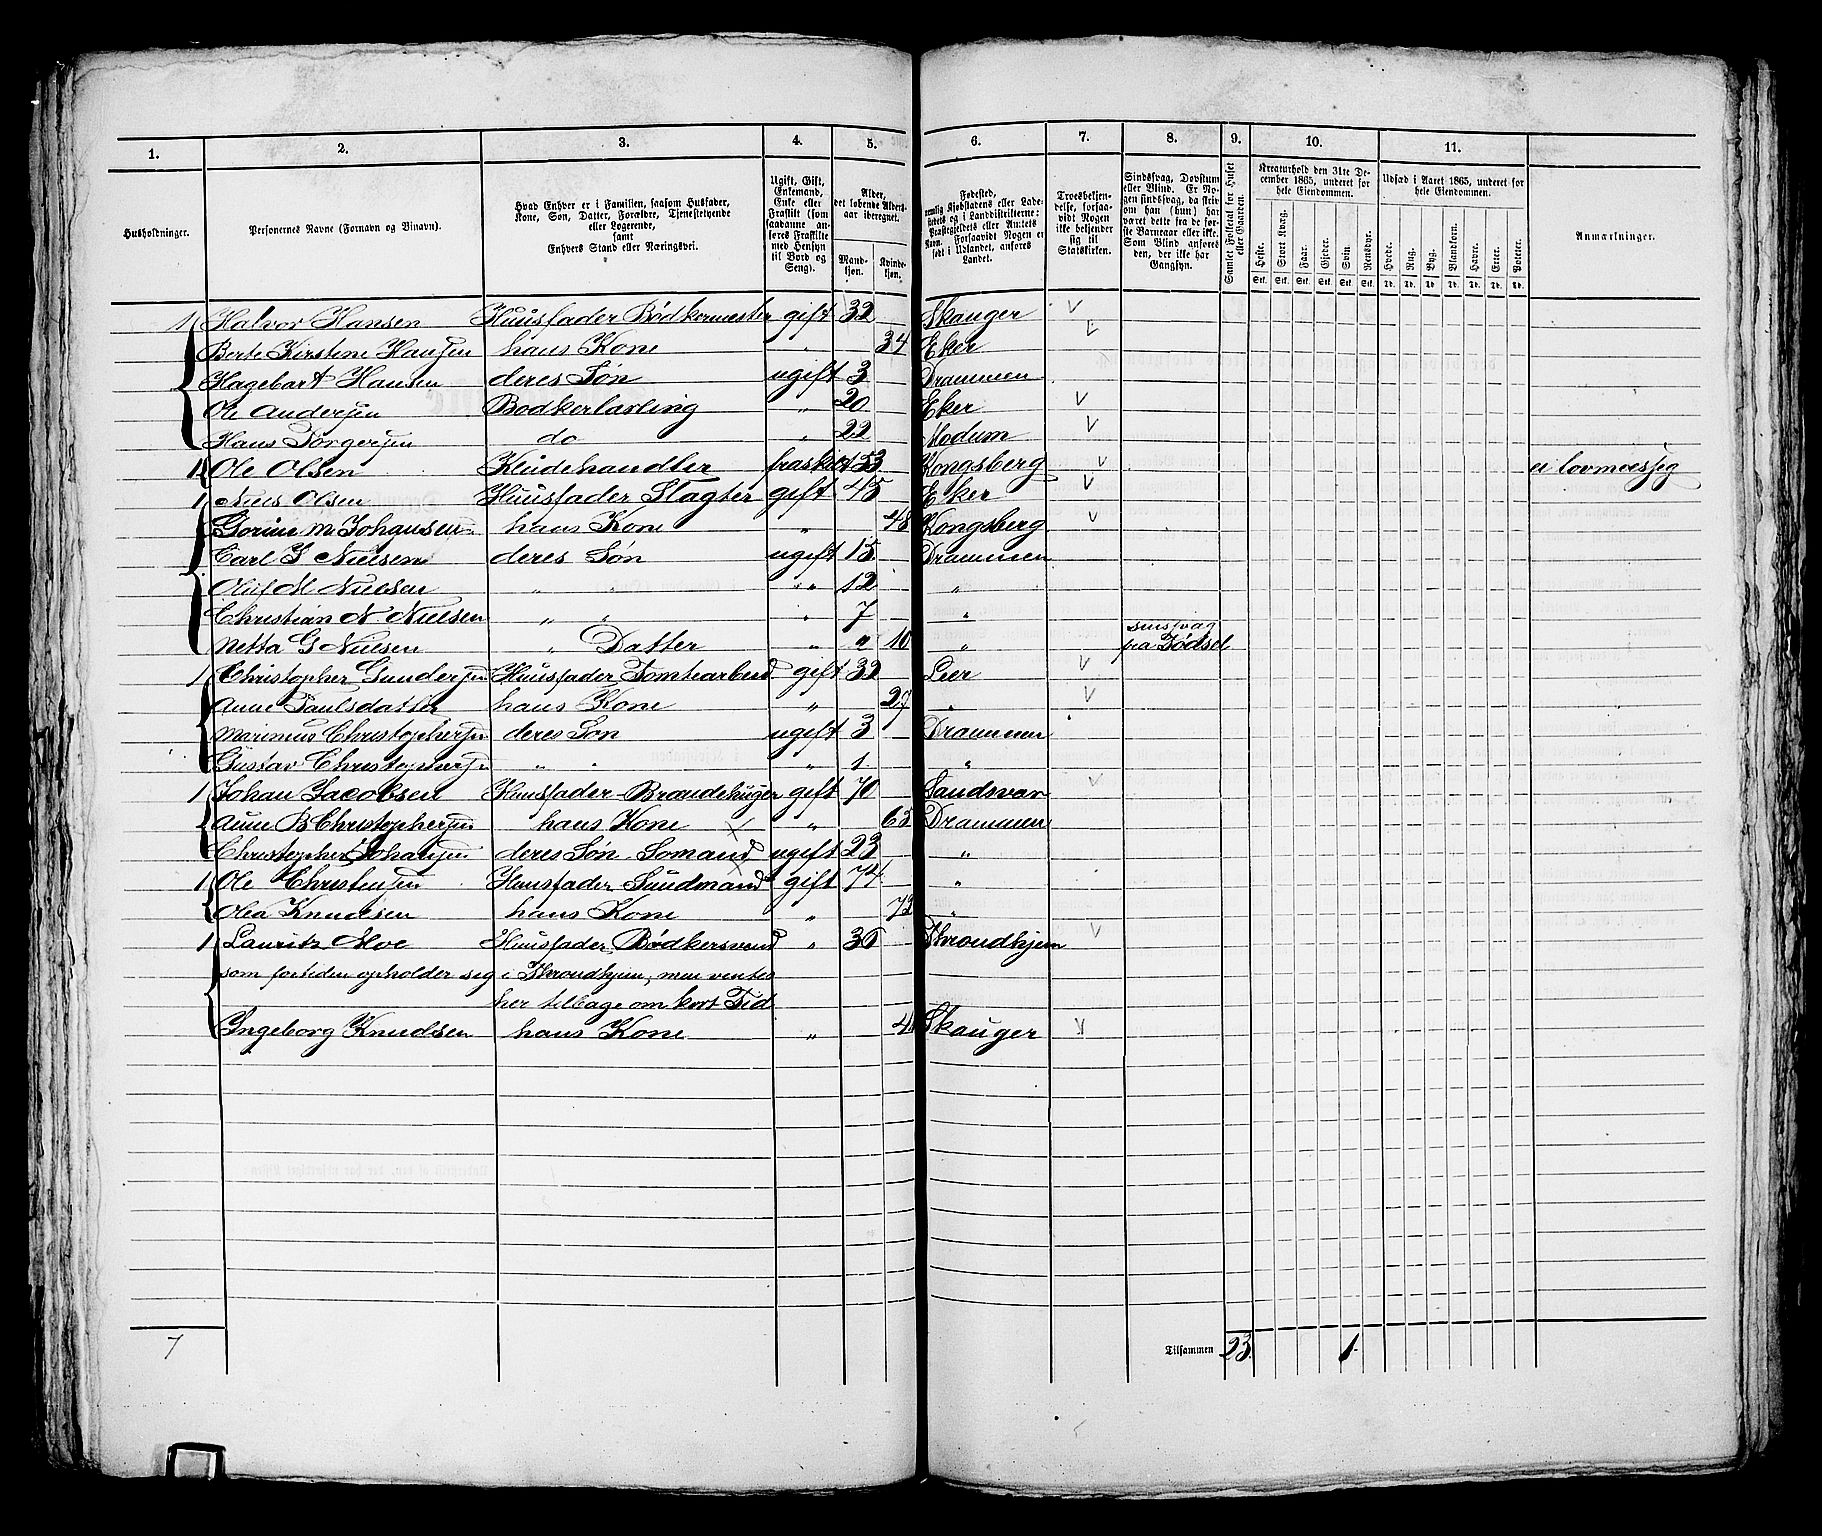 1. 2. 3. 4. 5. 6. 7. 8. 9. 10. 11.
Husholdninger.
Personernes Navne (Fornavn og Binavn).
Hvad Enhver er i Familien, saasom Husfader,
Kone, Søn, Datter, Forældre, Tjenestetyende
eller Logerende,
samt
Enhvers Stand eller Næringsvei.
Ugift, Gift,
Enkemand,
Enke eller
Fraskilt (som
saadanne an-
føres Fraskilte
med Hensyn
til Bord og
Seng).
Alder,
det løbende Alders-
aar iberegnet.
Mand-
kjøn.
Kvinde-
kjøn.
Fødested,
nemlig Kjøbstadens eller Lade-
stedets og i Landdistrikterne:
Præstegjeldets eller Amtets
Navn. Forsaavidt Nogen er
født i Udlandet, anføres
Landet.
Troesbekjen-
delse, forsaa-
vidt Nogen
ikke bekjender
sig til
Statskirken.
Sindssvag, Døvstum
eller Blind. Er No-
gen sindssvag, da skriv
om han (hun) har
været dette fra de før-
ste Barneaar eller ikke.
Som Blind anføres
den, der ikke har
Gangsyn.
Samlet Folketal for Huset
eller Gaarden.
Kreaturhold den 31te De-
cember 1865, underet for
hele Eiendommen.
Heste. Stort Kvæg. Faar. Gjeder. Svin. Rensdyr.
Stk. Stk. Stk. Stk. Stk. Stk.
Udsæd i Aaret 1865, underet for
hele Eiendommen.
Hvede. Rug. Byg. Blandkorn. Havre. Erter. Poteter.
Td. Td. Td. Td. Td. Td. Td.
Anmærkninger.
1 Halvor Hansen Huusfader Bødkermester gift 32 Skauger
Berte Kirstine Hansen hans Kone " 34 Eker
Hagebart Hansen deres Søn ugift 3 Drammen
Ole Andersen Bodkerlærling " 20 Eker
Hans Torgersen do " 22 Modum
1 Ole Olsen Kludehandler fraskilt 53 Kongsberg
1 Niels Olsen Huusfader Slagter gift 45 Eker
Gorine M Johansen hans Kone " 48 Kongsberg
Carl G Nielsen deres Søn ugift 15 Drammen
Oluf M Nielsen " " " 12 "
Christian N Nielsen " " " 7 "
Netta G Nielsen " Datter " " 10 " sinssvag
fra Fødsel
1 Christopher Gundersen Huusfader Tomtearbeid gift 32 Lier
Anne Paulsdatter hans Kone " 27 "
Marinius Christophersen deres Søn ugift 3 Drammen
Gustav Christophersen " " " 1 "
1 Johan Jacobsen Huusfader Brændehuger gift 70 Sandsvær
Anne B Christophersen hans Kone " 65 Drammen
Christopher Johansen deres Søn Somand ugift 23 "
1 Ole Christensen Huusfader Sandmand gift 74 "
Olea Knudsen hans Kone " 72 "
1 Lauritz Moe Huusfader Bødkersvend " 36 Throndhjem
som fortiden opholder sig i Throndhjem, men ventes
her tilbage om kort Tid
Ingeborg Knudsen hans Kone " Skauger
7
Tilsammen 23. 1